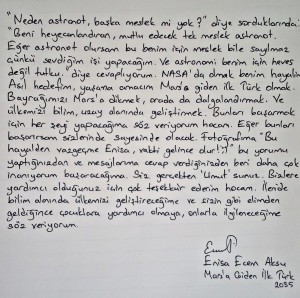 "Neden astronot, başka meslek mi yok?" diye sorduklarında:
"Beni heyecanlandıran, mutlu edecek tek meslek astronot.
Eğer astronot olursam bu benim için meslek bile sayılmaz
çünkü sevdiğim işi yapacağım. Ve astronomi benim için heves
değil tutku." diye cevaplıyorum. NASA'da olmak benim hayalim.
Asıl hedefim, yaşama amacım Mars'a giden ilk Türk olmak.
Bayrağımızı Mars'a dikmek, orada da dalgalandırmak. Ve
ülkemizi bilim, uzay alanında geliştirmek. Bunları başarmak
için her şeyi yapacağıma söz veriyorum hocam. Eğer bunları
başarırsam sizlerinde sayesinde olacak. Fotoğrafıma "Bu
hayalden vazgeçme Enisa, vakti gelince dur!:)" bu yorumu
yaptığınızdan ve mesajlarıma cevap verdiğinizden beri daha çok
inanıyorum başaracağıma. Siz gerçekten 'Umut' sunuz. Bizlere
yardımcı olduğunuz için çok teşekkür ederim hocam. İleride
bilim alanında ülkemizi geliştireceğime ve sizin gibi elimden
geldiğince çocuklara yardımcı olmaya, onlarla ilgileneceğime
söz veriyorum.
Enisa Ecem Aksu
Mars'a Giden İlk Türk
2035